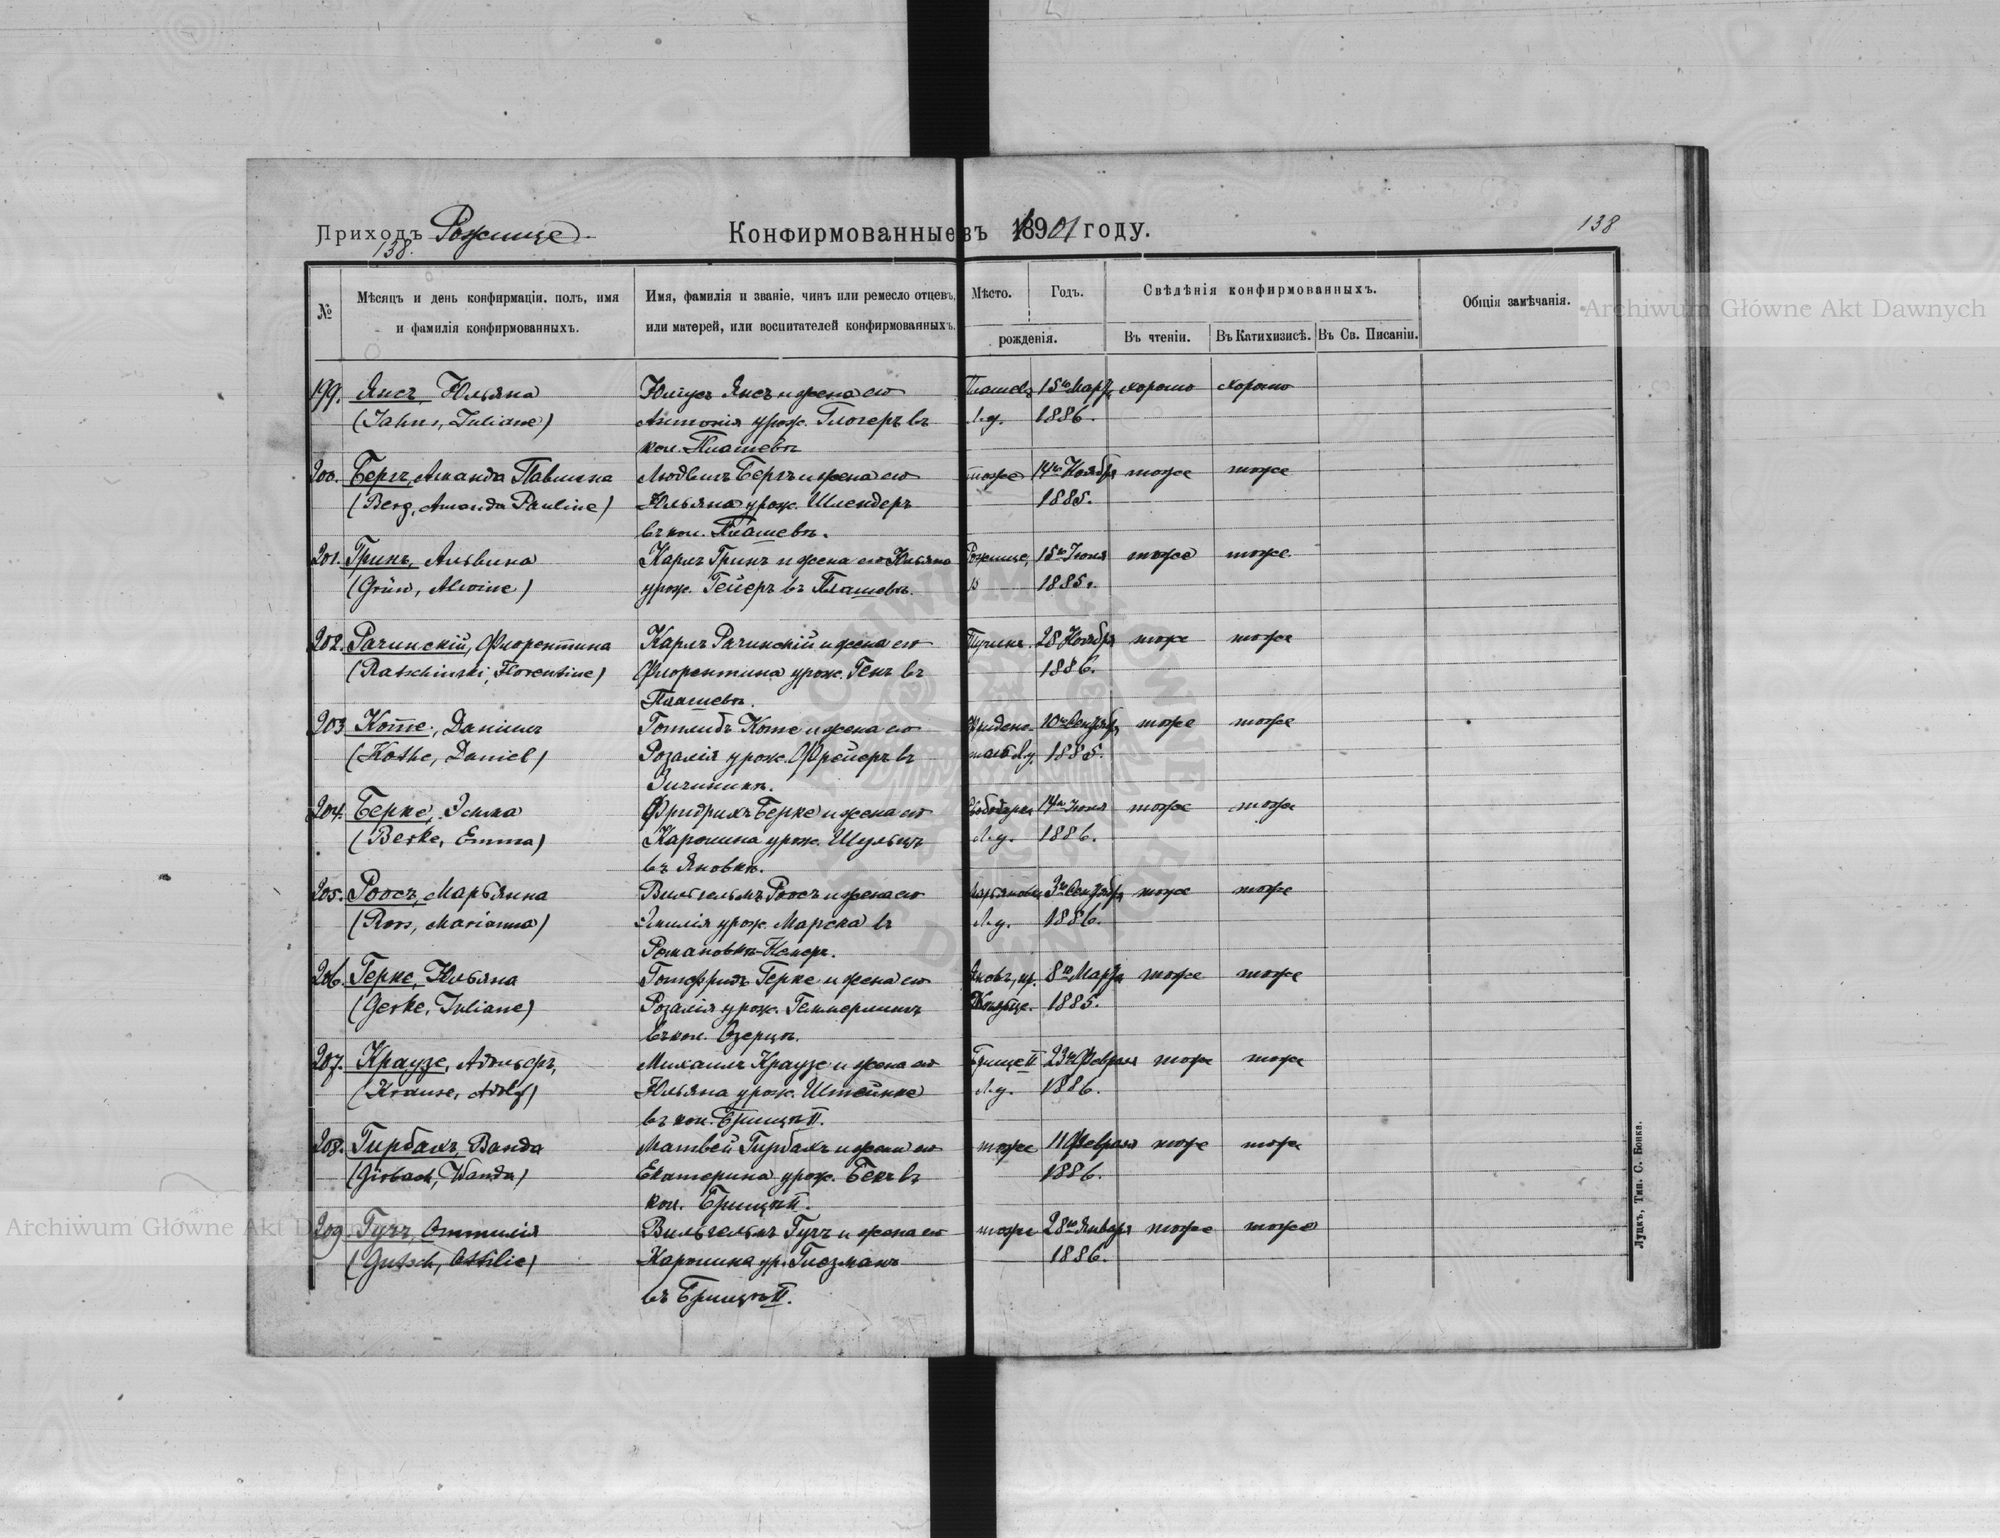 Приходъ Рожище.
138.
Конфирмованные въ 1901 году.
138
№
Мѣсяцъ и день конфирмаціи, полъ, имя
и фамилія конфирмованныхъ.
Имя, фамилія и званіе, чинъ или ремесло отцевъ,
или матерей, или воспитателей конфирмованныхъ.
Мѣсто.
Годъ.
рожденія.
Свѣдѣнія конфирмованныхъ.
Въ чтеніи.
Въ Катихизисѣ.
Въ Св. Писаніи.
Общія замѣчанія.
Archiwum Główne Akt Dawnych
199. Янсъ, Юльяна Юліусъ Янсъ и жена его 15го Марта хорошо хорошо
(Jahns, Juliane) Антонія урож. Глогеръ въ Л.у. 1886.
кол. Пляшевѣ
200. Бергъ, Аманда Павлина Людвигъ Бергъ и жена его тоже 14го Ноября тоже тоже
(Berg, Amanda Pauline) Юльяна урож. Шлендеръ 1885.
въ кол. Пляшевѣ.
201. Гринъ, Альвина Карлъ Гринъ и жена его Юльяна Рожище, 15го Іюня тоже тоже
(Grün, Alwine) урож. Гейеръ въ Пляшевѣ. 1885.
202. Рачинскій, Флорентина Карлъ Рачинскій и жена его 28 Ноября тоже тоже
(Ratschinski, Florentine) Флорентина урож. Генъ въ 1886.
Пляшевѣ.
203 Коте, Даніилъ Готлибъ Коте и жена его тоже тоже
(Kothe, Daniel) Розалія урож. Фрейеръ въ 1885.
204. Берке, Эмма Фридрихъ Берке и жена его 14го Іюня тоже тоже
(Berke, Emma) Каролина урож. Шульцъ Л.у. 1886.
въ Яновкѣ.
205. Роосъ, Марьянна Вильгельмъ Роосъ и жена его тоже тоже
(Roos, Marianna) Эмилія урож. Марска въ Л.у. 1886.
206. Герке, Юльяна Готфридъ Герке и жена его 8го Марта тоже тоже
(Gerke, Juliane) Розалія урож. Геммерлингъ 1885.
въ кол. Озерцѣ.
207. Краузе, Адольфъ, Михаилъ Краузе и жена его 23го Февраля тоже тоже
(Krause, Adolf) Юльяна урож. Штейнке Л.у. 1886.
въ кол. Брищѣ II.
208. Гирбахъ, Ванда Матвей Гирбахъ и жена его тоже 11 Февраля тоже тоже
(Girbach, Wanda) Екатерина урож. Бекъ въ 1886.
кол. Брищѣ II.
209. Гучъ, Оттилія Вильгельмъ Гучъ и жена его тоже 28го Января тоже тоже
(Gutsch, Ottilie) Каролина ур. Гизманъ 1886.
въ Брищѣ II.
Луцкъ, Тип. С. Бонка.
Archiwum Główne Akt Dawnych